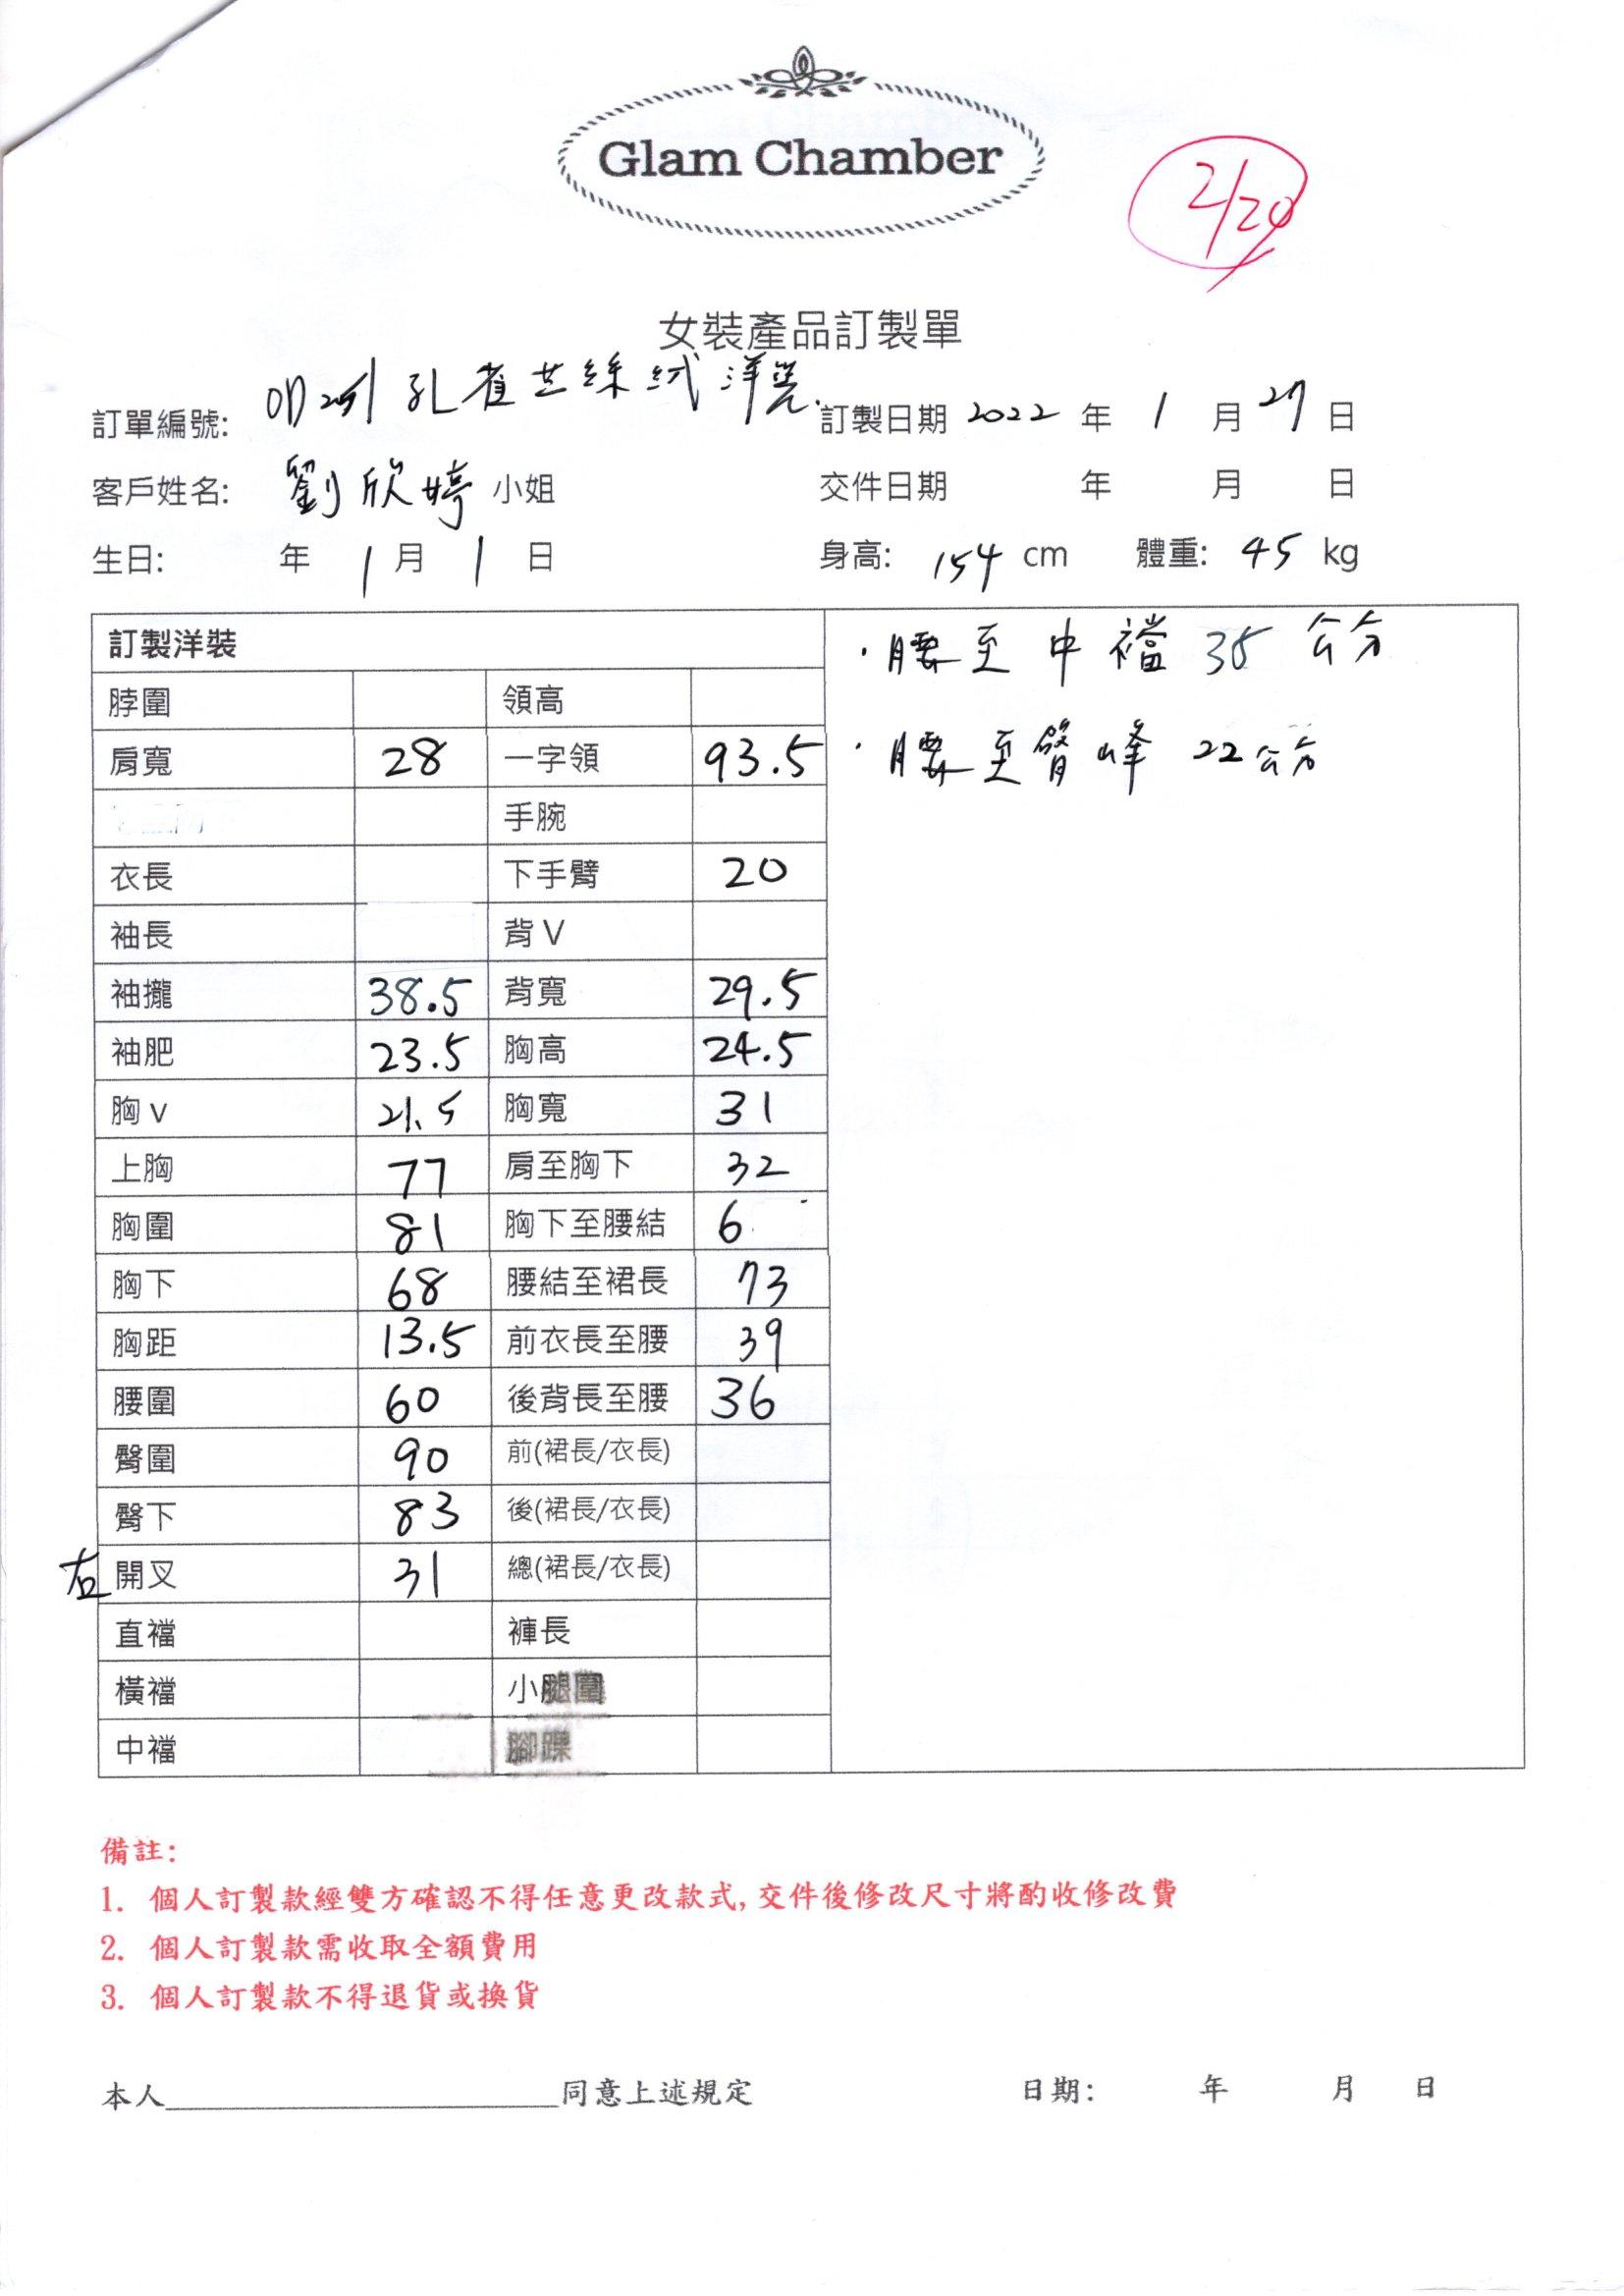 Glam Chamber
2/20
女裝產品訂製單
訂單編號: 孔雀 絲絨洋裝. 訂製日期 2022 年 1 月 27 日
客戶姓名: 劉欣婷 小姐 交件日期 年 月 日
生日: 年 1 月 1 日 身高: 154 cm 體重: 45 kg
訂製洋裝
脖圍 領高
肩寬 28 一字領 93.5
手腕
衣長 下手臂 20
袖長 背 V
袖攏 38.5 背寬 29.5
袖肥 23.5 胸高 24.5
胸 v 21.5 胸寬 31
上胸 77 肩至胸下 32
胸圍 81 胸下至腰結 6
胸下 68 腰結至裙長 73
胸距 13.5 前衣長至腰 39
腰圍 60 後背長至腰 36
臀圍 90 前(裙長/衣長)
臀下 83 後(裙長/衣長)
右 開叉 31 總(裙長/衣長)
直襠 褲長
橫襠 小腿圍
中襠 腳踝
·腰至中襠 35 公分
·腰至臀峰 22 公分
備註:
1. 個人訂製款經雙方確認不得任意更改款式, 交件後修改尺寸將酌收修改費
2. 個人訂製款需收取全額費用
3. 個人訂製款不得退貨或換貨
本人____________________同意上述規定 日期: 年 月 日